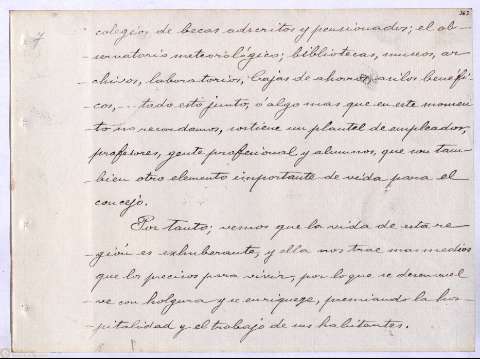 262
colegios de becas adscritos y pensionados; el ob-
-servatorio meteorológico; bibliotecas, museos, ar-
chivos, laboratorios, Cajas de ahorros, asilos benéfi-
cos, ... todo esto junto, o algo mas que en este momen-
to no recordamos, sostiene un plantel de empleados,
profesores, gente profesional y alumnos, que son tam-
-bien otro elemento importante de vida para el
concejo.
Por tanto; vemos que la vida de esta re-
-gión es exhuberante, y ella nos trae mas medios
que los precisos para vivir, por lo que se desenvuel-
ve con holgura y se enriquege, premiando la hos-
-pitalidad y el trabajo de sus habitantes.